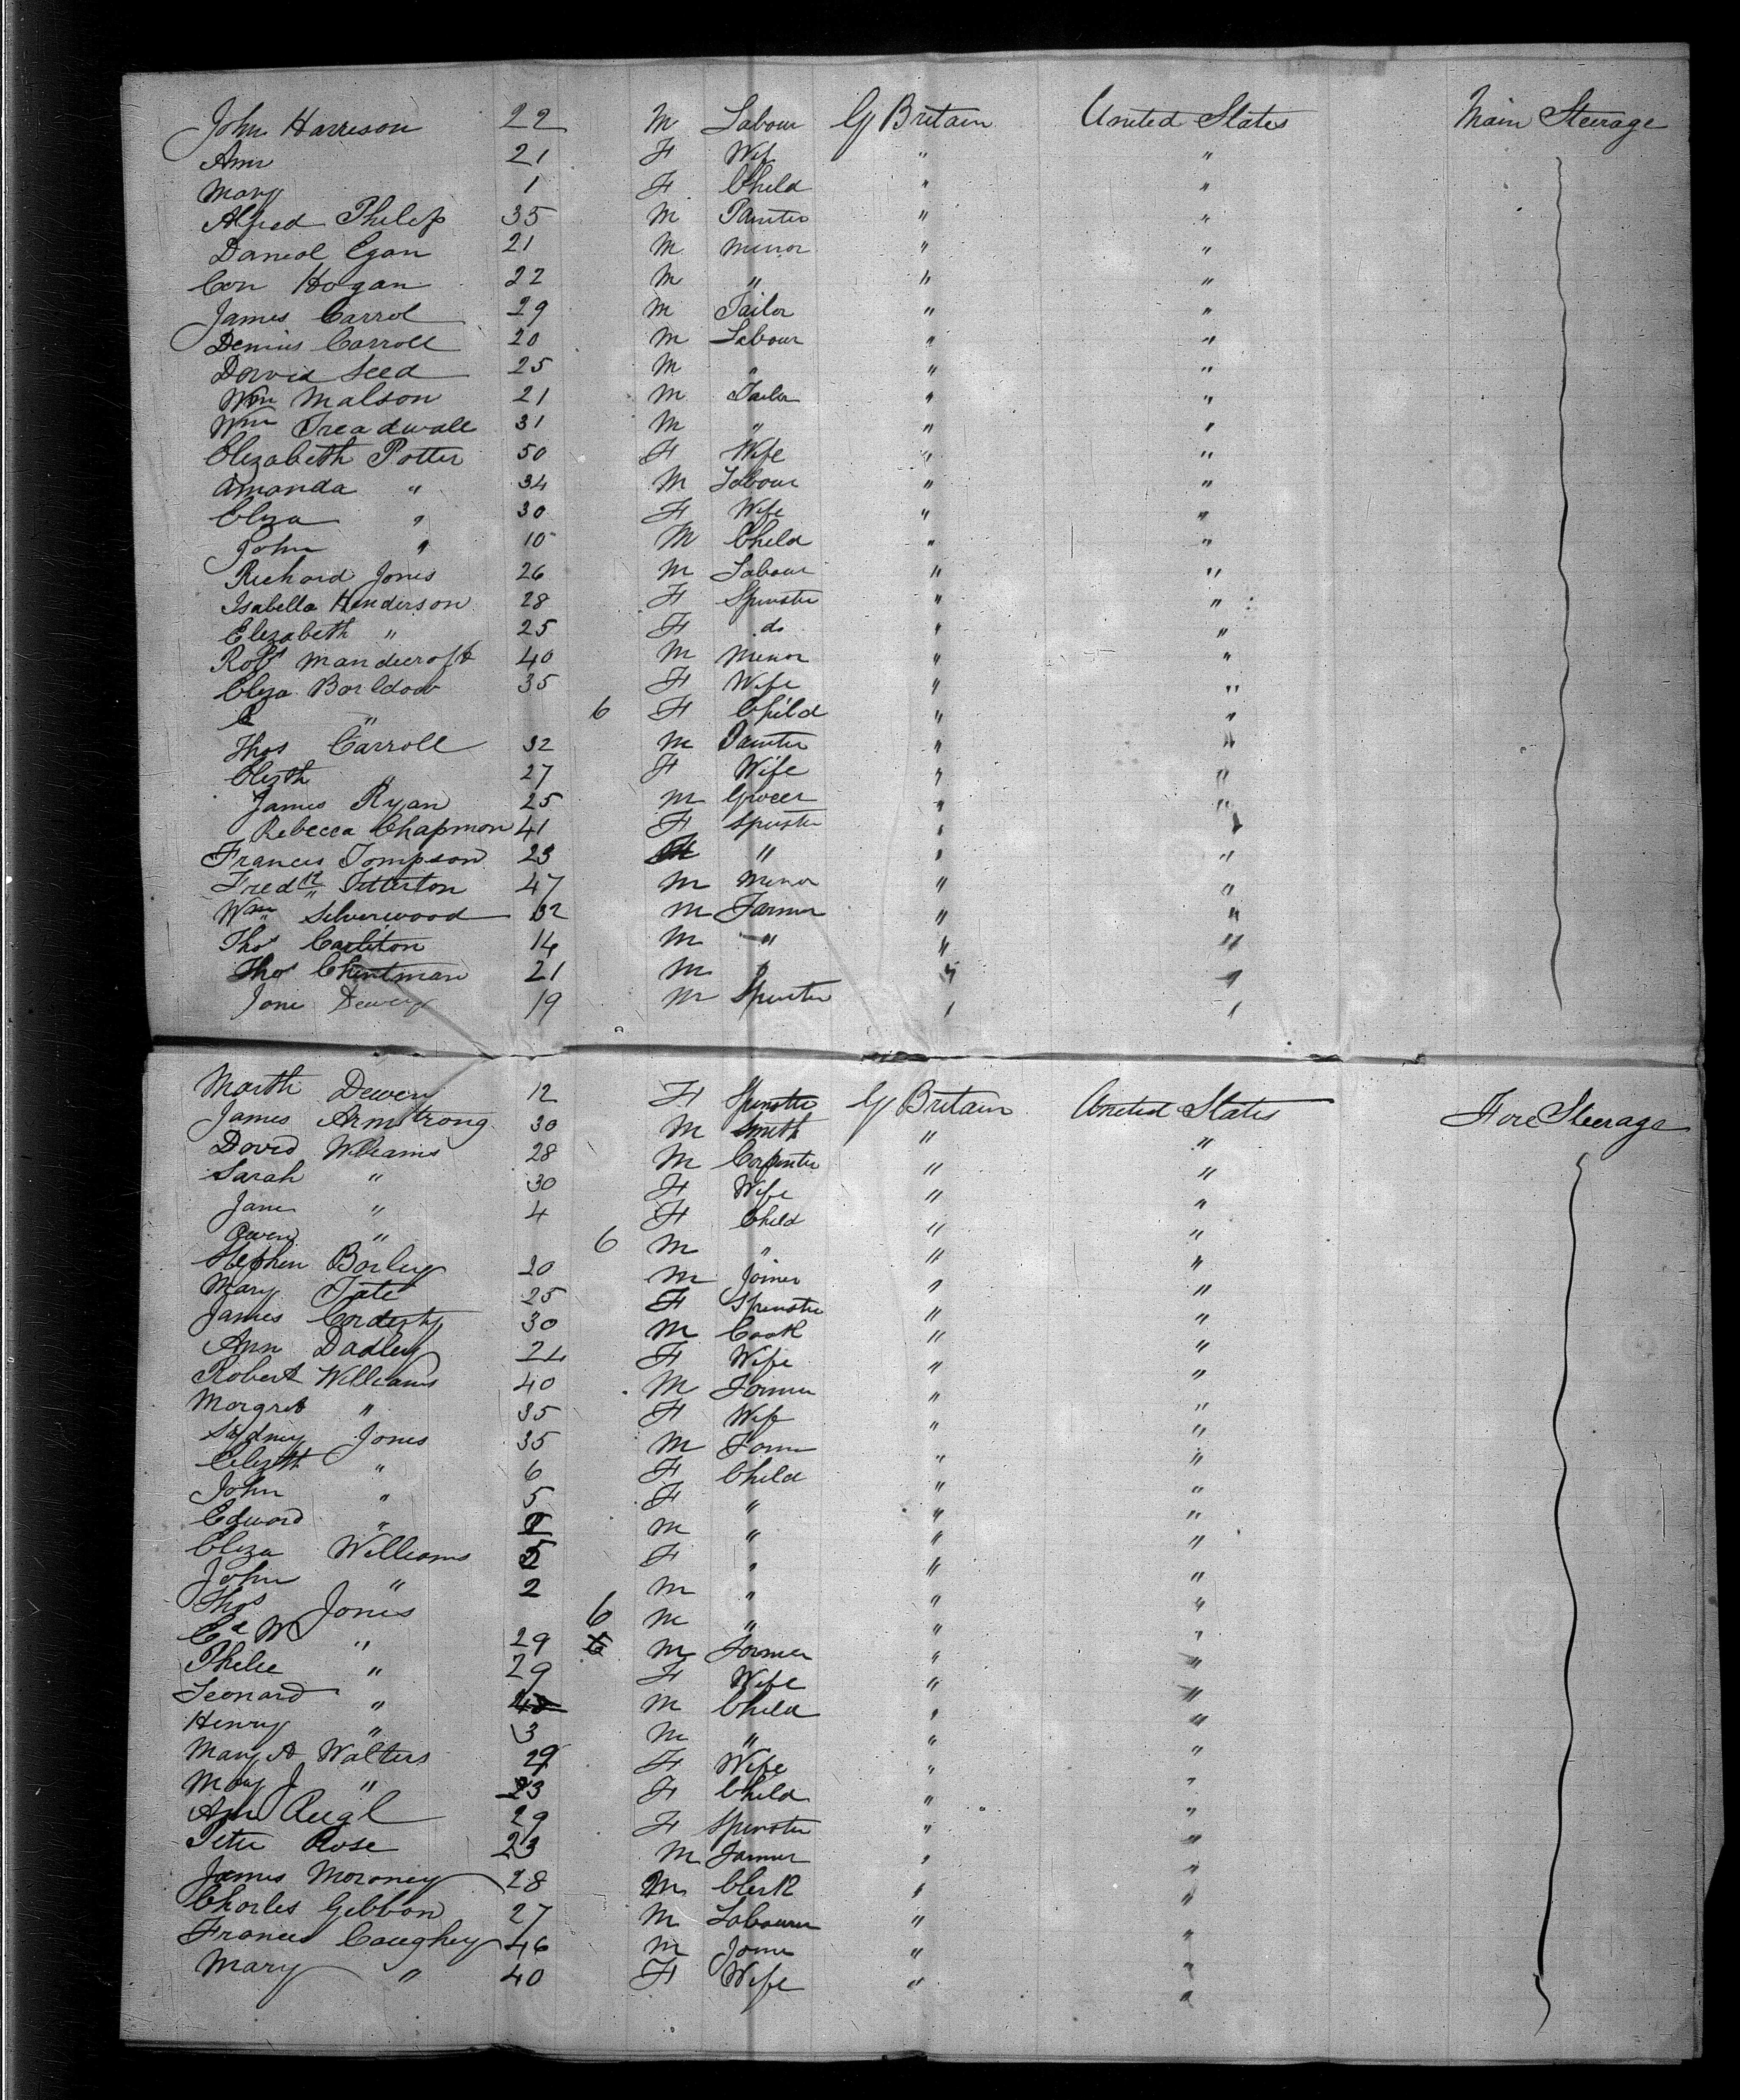 John Harrison 22 M Labour G Britain United States Main Steerage
Ann 21 F Wife " "
Mary 1 F Child " "
Alfred Philip 35 M Painter " "
Daniel Egan 21 M Minor " "
Con Hogan 22 M " " "
James Carrol 29 M Tailor " "
Dennis Carroll 20 M Labour " "
David Seed 25 M " " "
Wm Malson 21 M Tailor " "
Wm Treadwall 31 M " " "
Elizabeth Potter 50 F Wife " "
Amanda " 34 M Labour " "
Eliza " 30 F Wife " "
John " 10 M Child " "
Richard Jones 26 M Labour " "
Isabella Henderson 28 F Spinster " "
Elizabeth " 25 F do " "
Robt Mandecroft 40 M Minor " "
Eliza 35 F Wife " "
E " 6 F Child " "
Thos Carroll 32 M Painter " "
Elizth " 27 F Wife " "
James Ryan 25 M Grocer " "
Rebecca Chapman 41 F Spinster " "
Francis Tompson 23 " " "
Fredk Titterton 47 M Minor " "
Wm Silverwood 32 M Farmer " "
Thos Carliton 14 M " " "
Thos 21 M " " "
Jane Dewery 19 M Spinster " "
Marth Dewery 12 F Spinster G Britain United States Fore Steerage
James Armstrong 30 M Smith " "
David Williams 28 M Carpenter " "
Sarah " 30 F Wife " "
Jane " 4 F Child " "
Owen " 6 M " " "
Stephen Barley 20 M Joiner " "
Mary Tate 25 F Spinster " "
James 30 M Cook " "
Ann Dadley 24 F Wife " "
Robert Williams 40 M Farmer " "
Margret " 35 F Wife " "
Sydney Jones 35 M Farm " "
Elizth " 6 F Child " "
John " 5 F " " "
Edward " M " " "
Eliza Williams 5 F " " "
John " 2 M " " "
Thos Jones 6 M " " "
Ed W " 29 M Farmer " "
Philee " 29 F Wife " "
Leonard " M Child " "
Henry " 3 M " " "
Mary A Walters 29 F Wife " "
Mary J " 23 F Child " "
Ann 29 F Spinster " "
Peter Rose 23 M Farmer " "
James Moroney 28 M Clerk " "
Charles Gibbon 27 M Labourer " "
Francis Caughey 46 M Joiner " "
Mary " 40 F Wife " "